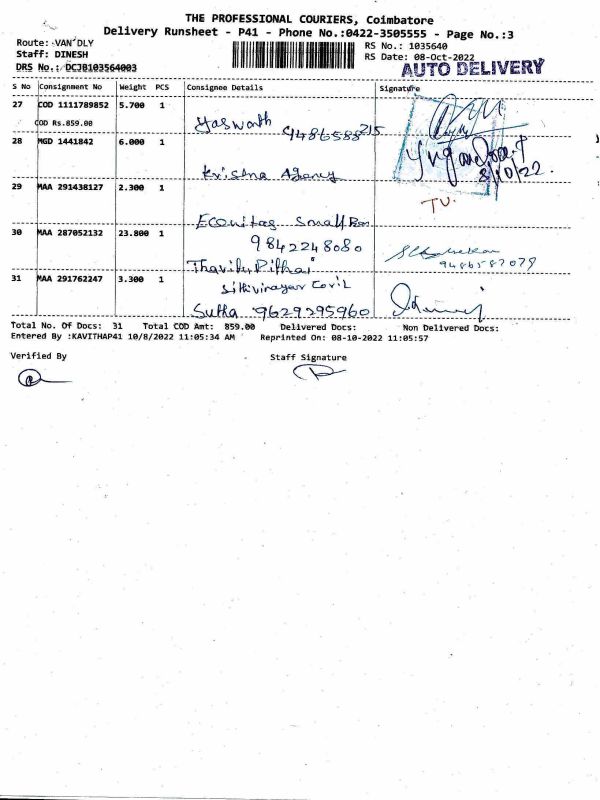 THE PROFESSIONAL COURIERS, Coimbatore
Delivery Runsheet - P41 - Phone No.:0422-3505555 - Page No.:3
Route: VAN DLY
Staff: DINESH
DRS No.: DCJB103564003
RS No.: 1035640
RS Date: 08-Oct-2022
AUTO DELIVERY
S No Consignment No Weight PCS Consignee Details Signature
27 COD 1111789852 5.700 1
COD Rs.859.00
Yaswanth 9486588215
28 MGD 1441842 6.000 1
8/10/22.
Krisna Agency
29 MAA 291438127 2.300 1
TV.
Small
30 MAA 287052132 23.800 1
9842248080
9486587079
31 MAA 291762247 3.300 1
Sutha 9629295960
Total No. Of Docs: 31 Total COD Amt: 859.00 Delivered Docs: Non Delivered Docs:
Entered By :KAVITHAP41 10/8/2022 11:05:34 AM Reprinted On: 08-10-2022 11:05:57
Verified By Staff Signature